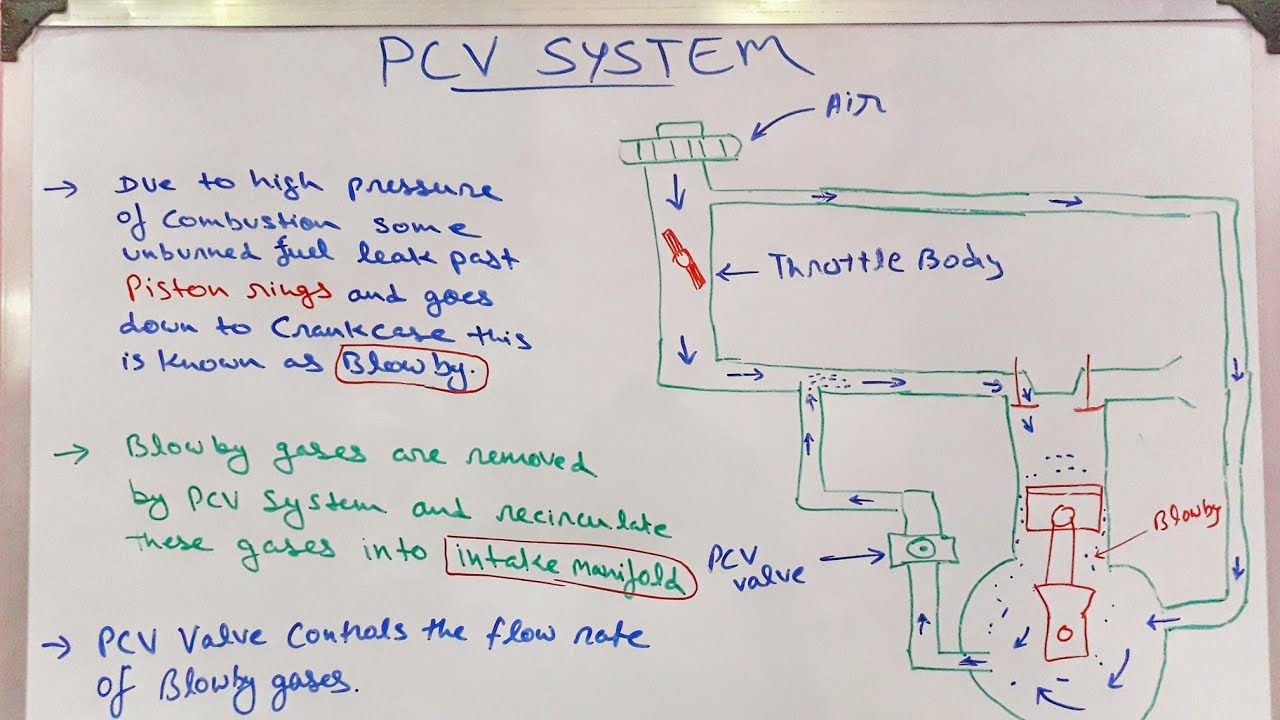 PCV SYSTEM
Air
→ Due to high pressure
of combustion some
unburned fuel leak past
Piston rings and goes
down to Crankcase this
is known as Blowby.
Throttle Body
→ Blowby gases are removed
by PCV System and recirculate
these gases into intake manifold
Blowby
PCV
valve
→ PCV Valve Controls the flow rate
of Blowby gases.